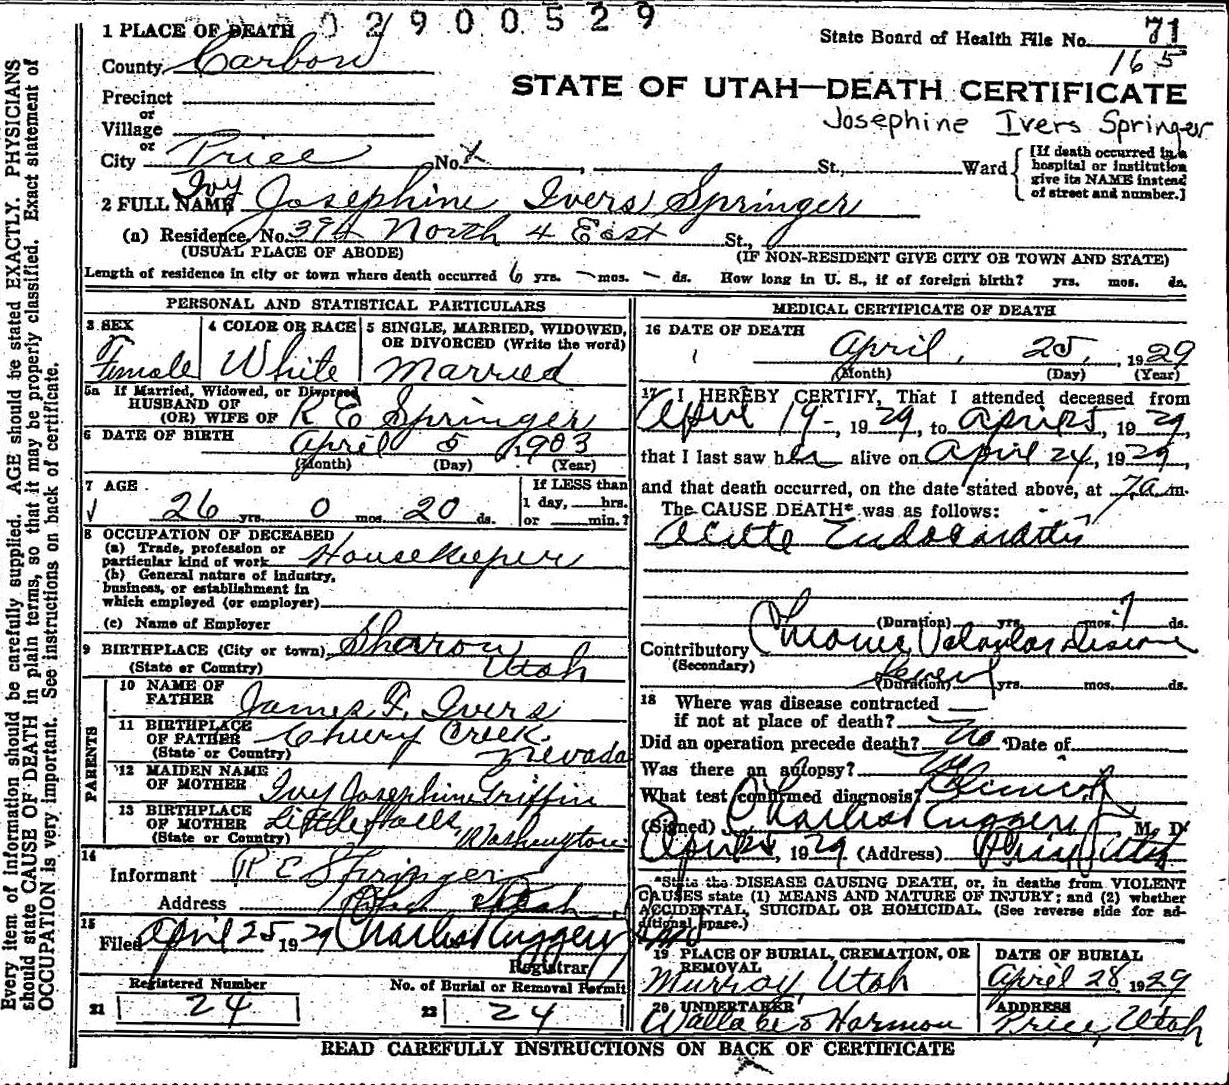 0 2 9 0 0 5 2 9
1 PLACE OF DEATH
State Board of Health File No. 71
165
County Carbon
STATE OF UTAH—DEATH CERTIFICATE
Precinct
or
Village
Josephine Ivers Springer
or
City Price No. St., Ward
[If death occurred in a hospital or institution give its NAME instead of street and number.]
Ivy
2 FULL NAME Josephine Ivers Springer
(a) Residence, No. 394 North 4 East St.,
(USUAL PLACE OF ABODE) (IF NON-RESIDENT GIVE CITY OR TOWN AND STATE)
Length of residence in city or town where death occurred 6 yrs. – mos. – ds. How long in U. S., if of foreign birth? yrs. mos. ds.
PERSONAL AND STATISTICAL PARTICULARS
3 SEX
Female
4 COLOR OR RACE
White
5 SINGLE, MARRIED, WIDOWED,
OR DIVORCED (Write the word)
Married
5a If Married, Widowed, or Divorced
HUSBAND OF
(OR) WIFE OF R E Springer
6 DATE OF BIRTH April 5 1903
(Month) (Day) (Year)
7 AGE
26 yrs. 0 mos. 20 ds.
If LESS than
1 day, hrs.
or min.?
8 OCCUPATION OF DECEASED
(a) Trade, profession or
particular kind of work Housekeeper
(b) General nature of industry,
business, or establishment in
which employed (or employer)
(c) Name of Employer
9 BIRTHPLACE (City or town) Sharon
(State or Country) Utah
PARENTS
10 NAME OF
FATHER James F. Ivers
11 BIRTHPLACE
OF FATHER Cherry Creek,
(State or Country) Nevada
12 MAIDEN NAME
OF MOTHER Ivy Josephine Griffin
13 BIRTHPLACE
OF MOTHER Little Falls,
(State or Country) Washington
14
Informant R E Springer
Address Utah
15
Filed April 25 1929 Charles Ruggeri
Registrar
Registered Number
21 24
No. of Burial or Removal Permit
22 24
MEDICAL CERTIFICATE OF DEATH
16 DATE OF DEATH
April 25, 1929
(Month) (Day) (Year)
17 I HEREBY CERTIFY, That I attended deceased from
April 19-, 1929, to April 25, 1929,
that I last saw her alive on April 24, 1929
and that death occurred, on the date stated above, at 7 a m.
The CAUSE DEATH* was as follows:
Acute Endocarditis
(Duration) yrs. mos. 7 ds.
Contributory Chronic Valvular Disease
(Secondary)
(Duration) yrs. mos. ds.
18 Where was disease contracted
if not at place of death?
Did an operation precede death? No Date of
Was there an autopsy? No
What test confirmed diagnosis? Clinical
(Signed) Charles Ruggeri M. D.
April 25, 1929 (Address) Price Utah
*State the DISEASE CAUSING DEATH, or, in deaths from VIOLENT
CAUSES state (1) MEANS AND NATURE OF INJURY; and (2) whether
ACCIDENTAL, SUICIDAL OR HOMICIDAL. (See reverse side for ad-
ditional space.)
19 PLACE OF BURIAL, CREMATION, OR
REMOVAL
Murray, Utah
DATE OF BURIAL
April 28 1929
20 UNDERTAKER
Wallace & Harmon
ADDRESS
Price, Utah
READ CAREFULLY INSTRUCTIONS ON BACK OF CERTIFICATE
Every item of information should be carefully supplied. AGE should be stated EXACTLY. PHYSICIANS
should state CAUSE OF DEATH in plain terms, so that it may be properly classified. Exact statement of
OCCUPATION is very important. See instructions on back of certificate.